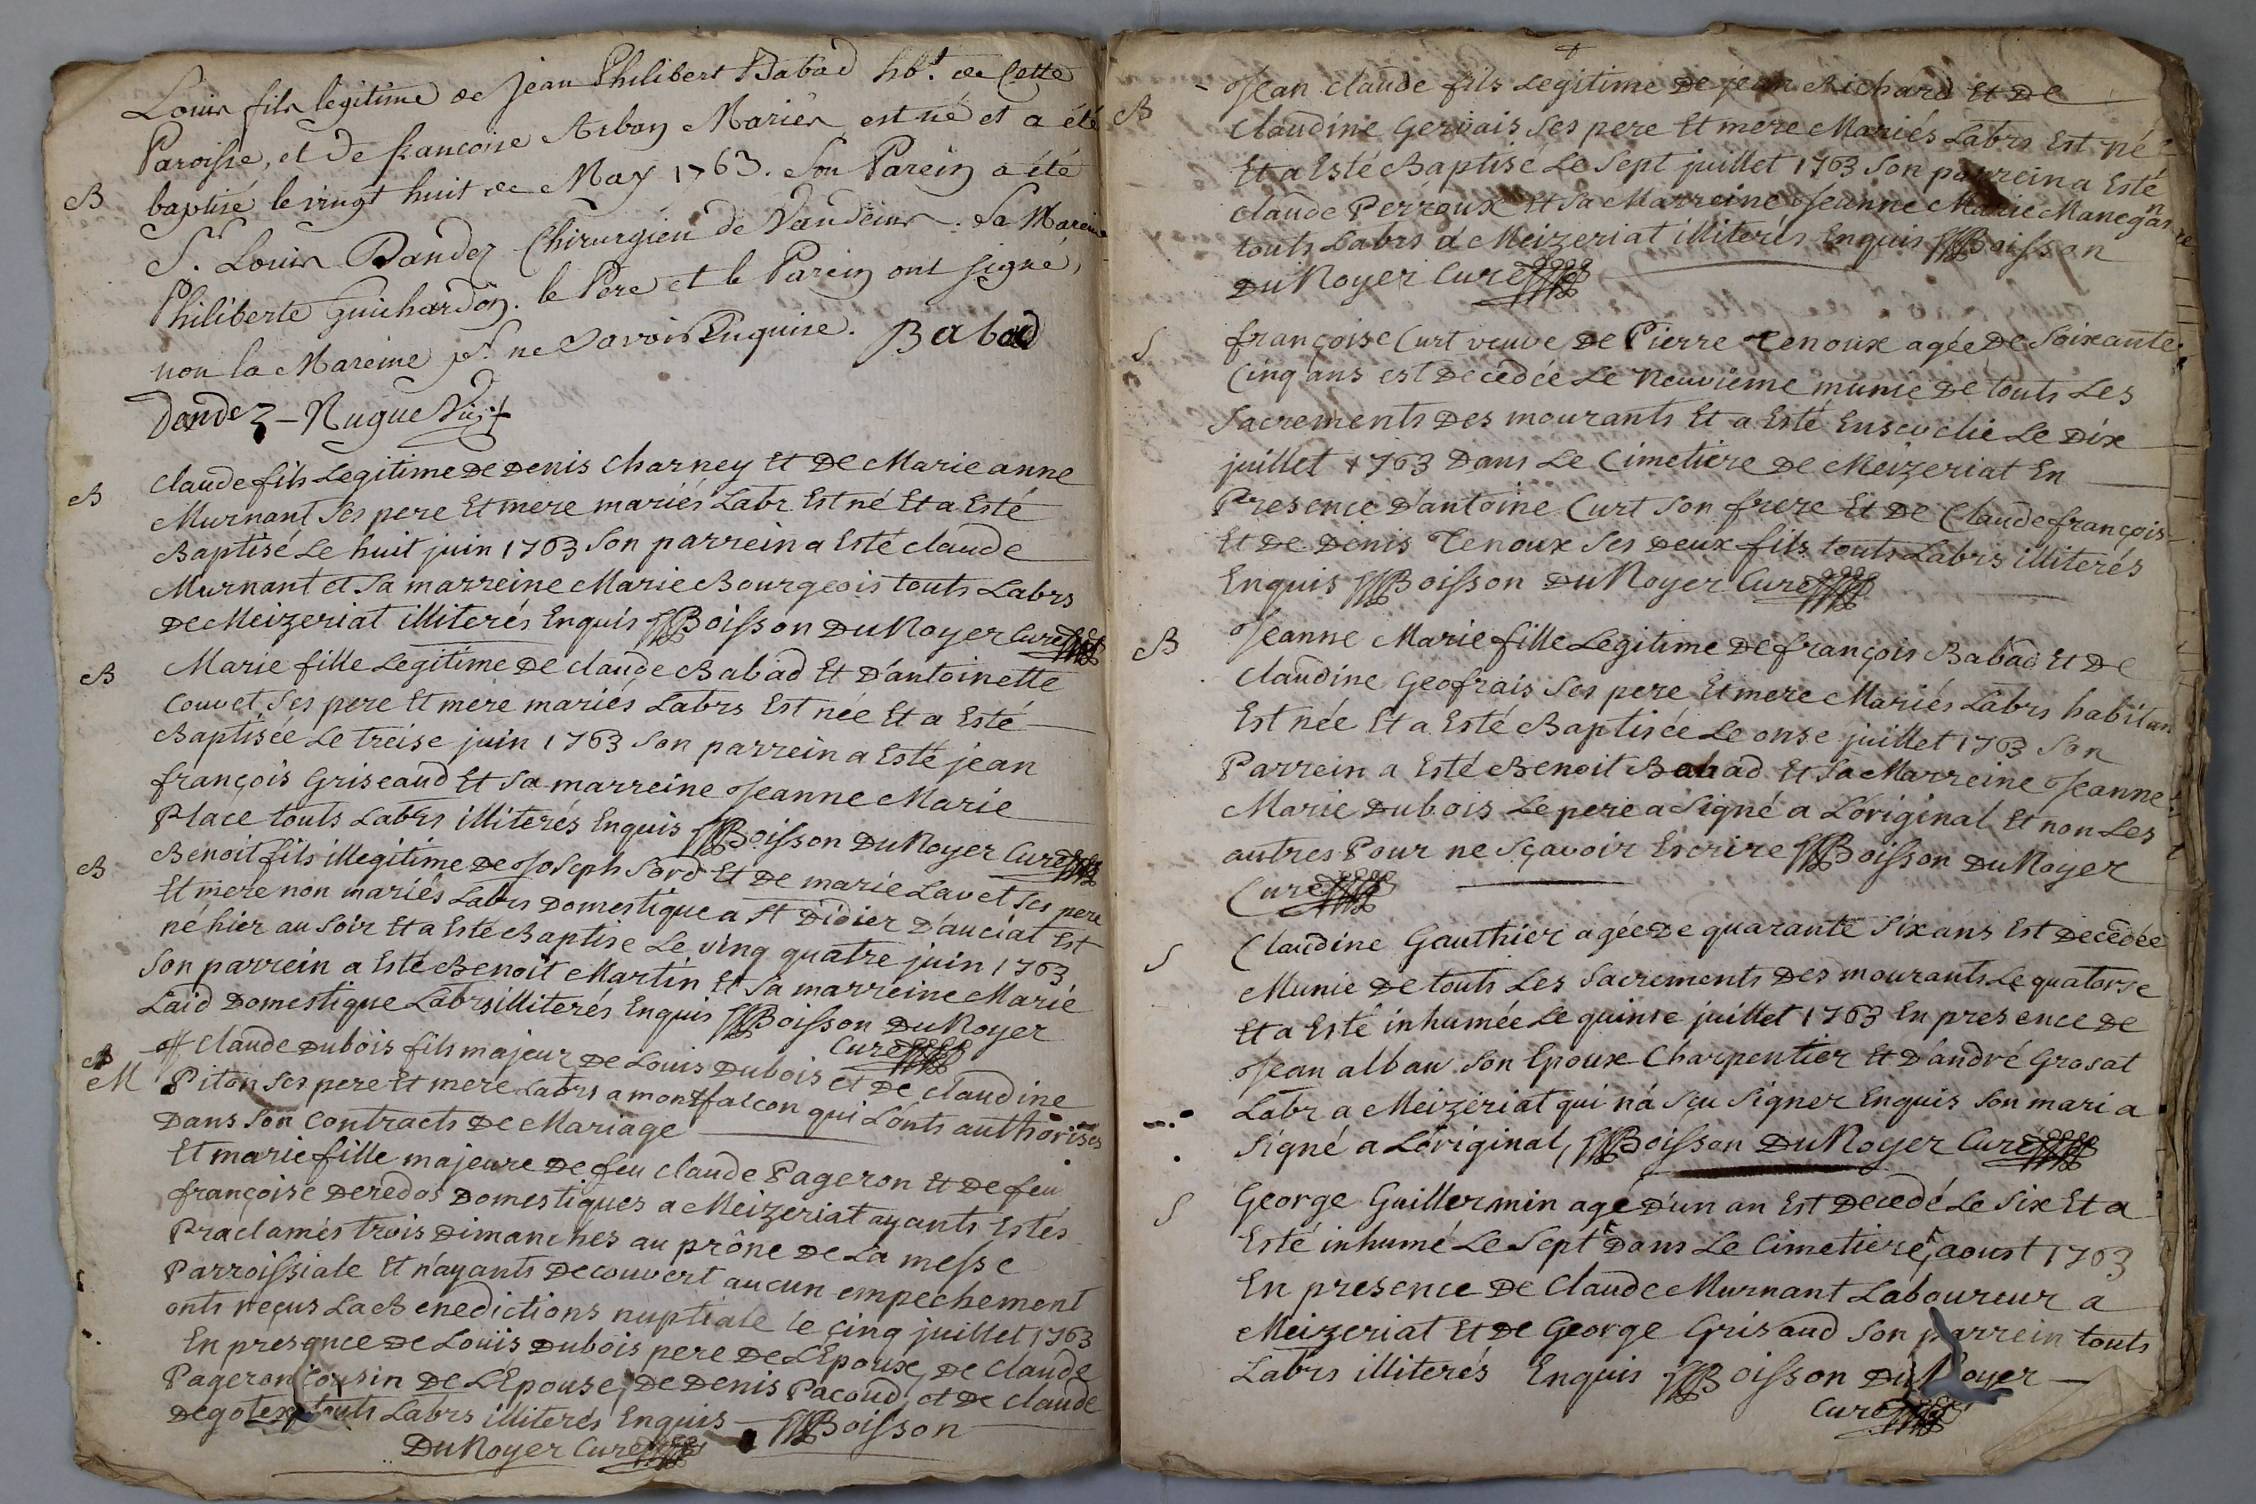 Louis fils legitime de Jean Philibert Babad hbt. de Cette
Paroisse, et de francoise Arban Mariés est né et a été
B
baptisé le vingt huit de May 1763. Son Parein a été
Sr. Louis Dandez Chirurgien de Vandeins. Sa Mareine
Philiberte Guichardon. le Pere et le Parein ont signé,
non la Mareine pr. ne Savoir Enquise. Babad
Dandez - Nugue
Claude fils Legitime De Denis Charney Et De Marie anne
B
Murnant Ses pere Et mere mariés Labr Est né Et a Esté
Baptisé Le huit juin 1763 Son parrein a Esté claude
Murnant et Sa marreine Marie Bourgeois touts Labrs
De Meizeriat illiterés Enquis Boisson Du Noyer Curé
B
Marie fille Legitime De claude Babad Et D'antoinette
Couvet Ses pere Et mere mariés Labrs Est née Et a Esté
Baptisée Le treise juin 1763 Son parrein a Esté jean
françois Griseaud Et Sa marreine Jeanne Marie
Place touts Labrs illiterés Enquis Boisson Du Noyer Curé
B
Benoit fils illegitime De Joseph Sord Et De marie Lavet Ses pere
Et mere non mariés Labrs Domestique a St Didier D'auciat Est
né hier au Soir Et a Esté Baptise Le ving quatre juin 1763
Son parrein a Esté Benoit Martin Et Sa marreine Marie
Laid Domestique Labrs illiterés Enquis Boisson Du Noyer
Curé
M
Claude Dubois fils majeur De Louis Dubois et De claudine
Piton Ses pere Et mere Labrs a montfalcon qui L'onts authorisés
Dans Son Contracts De Mariage
Et marie fille majeure De feu claude Pageron Et De feu
françoise Deredos Domestiques a Meizeriat ayants Estés
Praclamés trois Dimanches au prône De La messe
Parroissiale Et n'ayants Decouvert aucun empechement
onts reçus La Benedictions nuptiale le çinq juillet 1763
En presence De Louis Dubois pere De L'Epoux, De claude
Pageron Cousin De L'Epouse, De Denis Pacoud, et De claude
Degotex touts Labrs illiterés Enquis Boisson
Du Noyer Curé
B
Jean claude fils Legitime De jean Richard Et De
claudine Gervais Ses pere Et mere Mariés Labrs Est né
Et a Esté Baptisé Le Sept juillet 1763 Son parrein a Esté
claude Perroux Et Sa Marreine Jeanne Marie
touts Labrs a Meizeriat illiterés Enquis Boisson
Du Noyer Curé
S
françoise Curt veuve De Pierre Tenoux agée De Soixante
Cinq ans est Decedée Le Neuvieme munie De touts Les
Sacrements Des mourants Et a Esté Ensevelie Le Dix
juillet 1763 Dans Le Cimetiere De Meizeriat En
Presence D'antoine Curt Son frere Et De Claude françois
Et De Denis Tenoux Ses Deux fils touts Labrs illiterés
Enquis Boisson Du Noyer Curé
B
Jeanne Marie fille Legitime De françois Babad Et De
Claudine Geofrais Ses pere Et mere Mariés Labrs habitan
Est née Et a Esté Baptisée Le onse juillet 1763 Son
Parrein a Esté Benoit Babad Et Sa Marreine Jeanne
Marie Dubois Le pere a Signé a L'original Et non Les
autres Pour ne Sçavoir Escrire Boisson Du Noyer
Curé
S
Claudine Gauthier agée De quarante Six ans Est Decedée
Munie De touts Les Sacrements Des mourants Le quatorse
Et a Esté inhumée Le quinse juillet 1763 En presence De
Jean alban Son Epoux Charpentier Et D'andré Grosat
Labr a Meizeriat qui n'a Sçu Signer Enquis Son mari a
Signé a L'original, Boisson Du Noyer Curé
S
George Guillermin agé D'un an Est Decedé Le Six Et a
Esté inhumé Le Sept Dans Le Cimetiere, aoust 1763
En presence De Claude Murnant Laboureur a
Meizeriat Et De George Grisaud Son parrein touts
Labrs illiterés Enquis Boisson Du Noyer
Curé